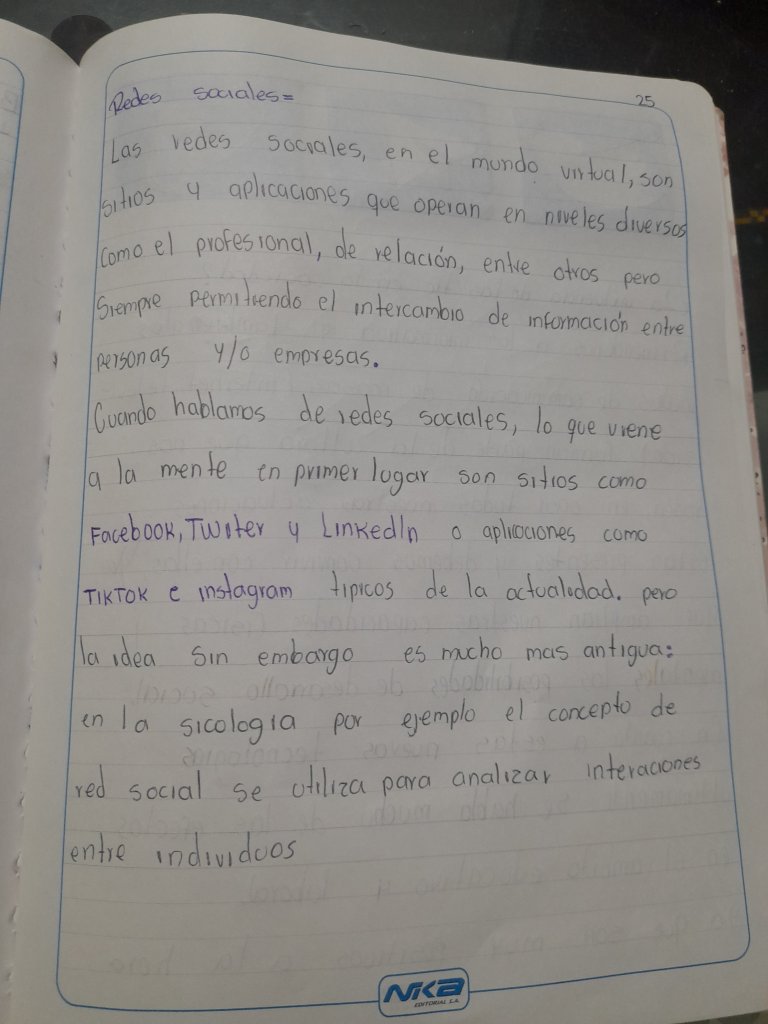 Redes sociales=
25
Las redes sociales, en el mundo virtual, son
sitios y aplicaciones que operan en niveles diversos
como el profesional, de relación, entre otros pero
siempre permitiendo el intercambio de información entre
personas y/o empresas.
Cuando hablamos de redes sociales, lo que viene
a la mente en primer lugar son sitios como
Facebook, Twiter y LinkedIn o aplicaciones como
TIKTOK e instagram tipicos de la actualidad. pero
la idea sin embargo es mucho mas antigua:
en la sicologia por ejemplo el concepto de
red social se utiliza para analizar interaciones
entre individuos
NIKA
EDITORIAL S.A.